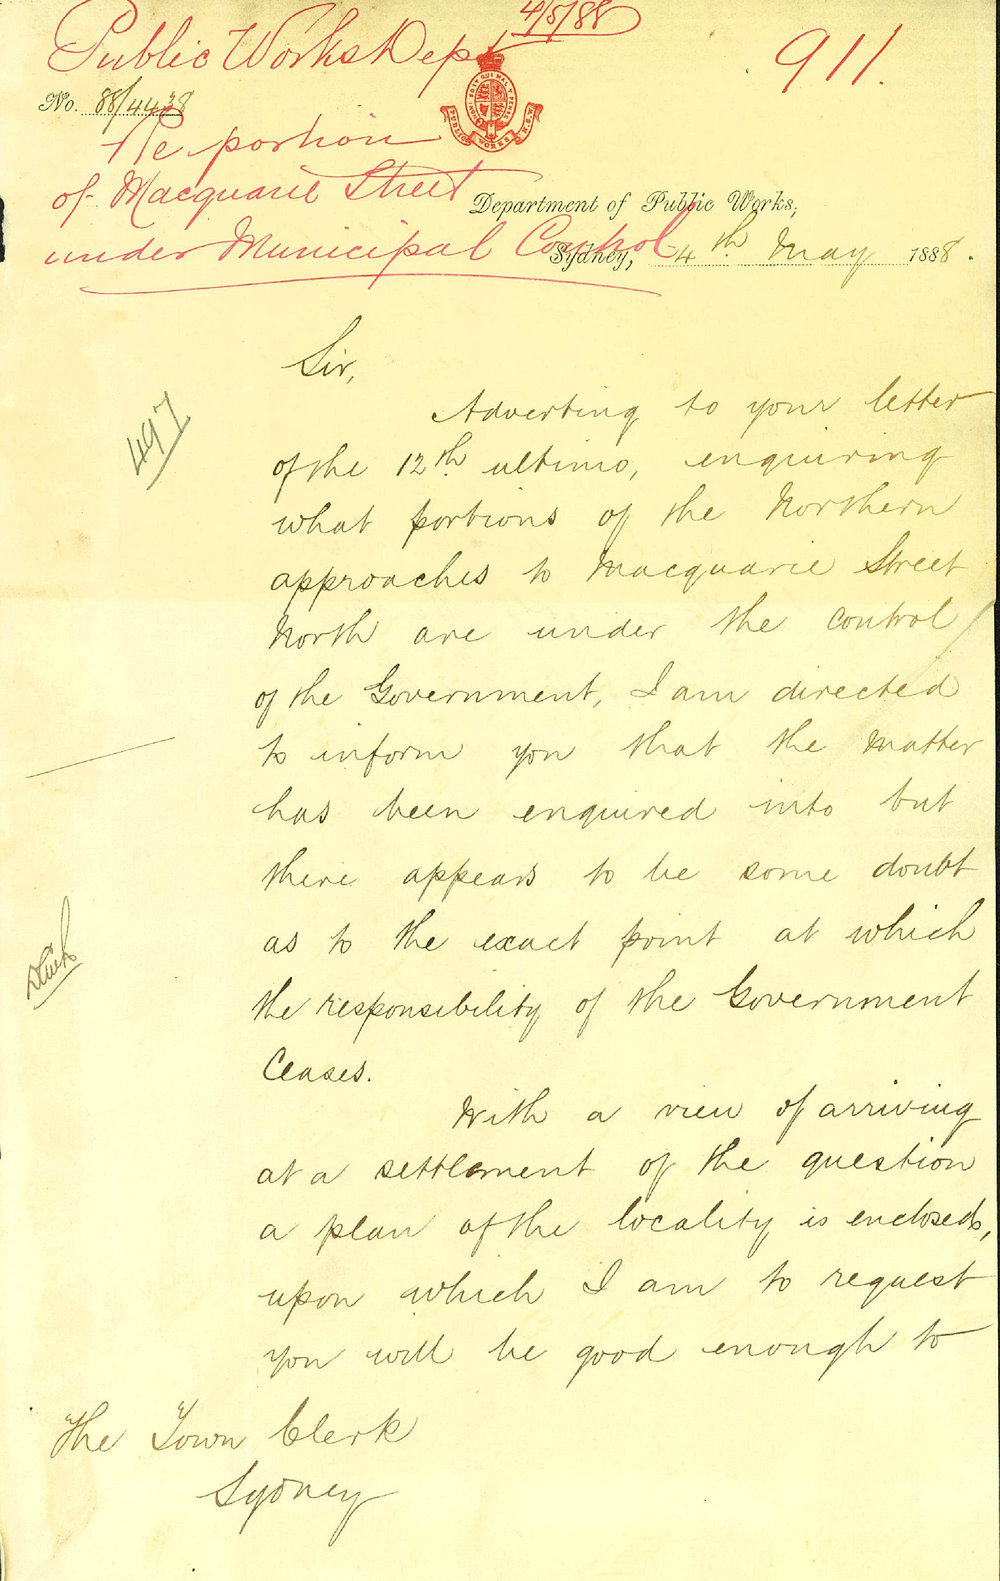 Public Works Dept 4/5/88
911.
No. 88/4438
Re portion
of Macquarie Street
under Municipal Control
PUBLIC WORKS N.S.W.
HONI SOIT QUI MAL Y PENSE
Department of Public Works,
Sydney, 4th May 1888.
Sir,
497
Adverting to your letter
of the 12th ultimo, enquiring
what portions of the Northern
approaches to Macquarie Street
North are under the control
of the Government, I am directed
to inform you that the matter
has been enquired into but
there appears to be some doubt
as to the exact point at which
the responsibility of the Government
Ceases.
With a view of arriving
at a settlement of the question
a plan of the locality is enclosed,
upon which I am to request
you will be good enough to
The Town Clerk
Sydney